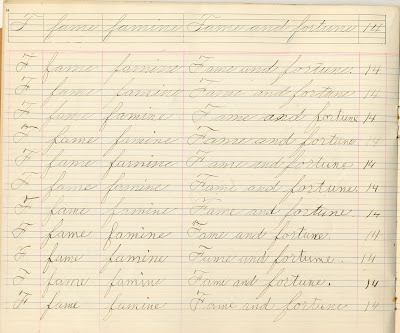 F fame famine Fame and fortune 14
F fame famine Fame and fortune. 14
F fame famine Fame and fortune 14
F fame famine Fame and fortune 14
F fame famine Fame and fortune 14
F fame famine Fame and fortune 14
F fame famine Fame and fortune. 14
F fame famine Fame and fortune. 14
F fame famine Fame and fortune. 14
F fame famine Fame and fortune. 14
F fame famine Fame and fortune. 14
F fame famine Fame and fortune 14